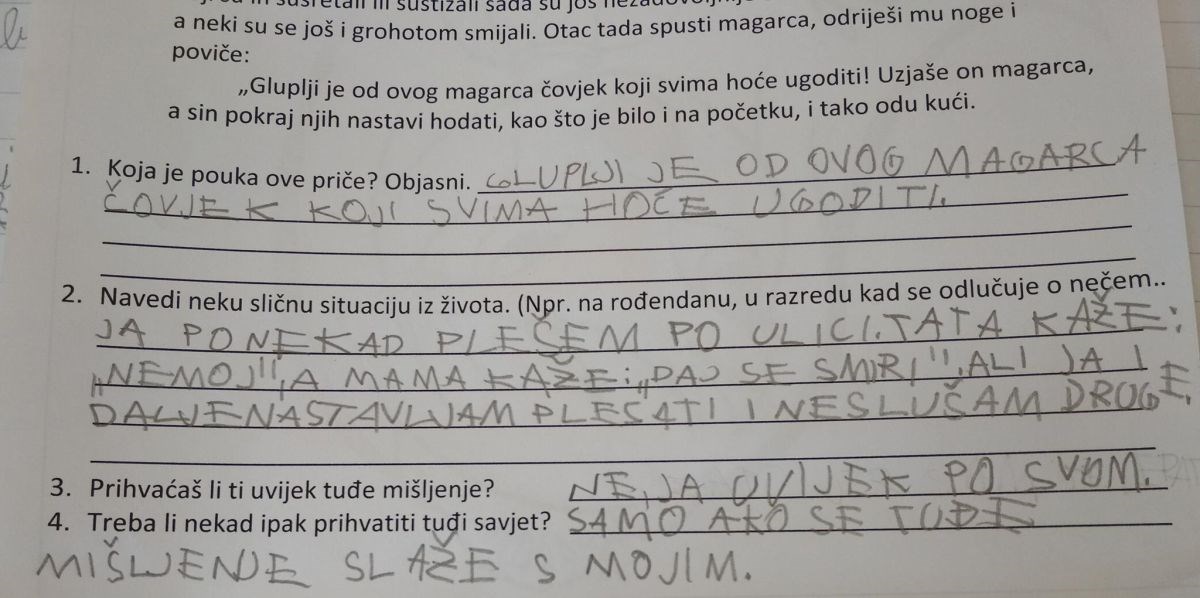 sustizali sada su još
a neki su se još i grohotom smijali. Otac tada spusti magarca, odriješi mu noge i
poviče:
„Gluplji je od ovog magarca čovjek koji svima hoće ugoditi! Uzjaše on magarca,
a sin pokraj njih nastavi hodati, kao što je bilo i na početku, i tako odu kući.
1. Koja je pouka ove priče? Objasni. GLUPLJI JE OD OVOG MAGARCA
ČOVJEK KOJI SVIMA HOĆE UGODITI.
2. Navedi neku sličnu situaciju iz života. (Npr. na rođendanu, u razredu kad se odlučuje o nečem..
JA PONEKAD PLEŠEM PO ULICI. TATA KAŽE:
„NEMOJ", A MAMA KAŽE: „DAJ SE SMIRI", ALI JA I
DALJE NASTAVLJAM PLESATI I NE SLUŠAM DROGE.
3. Prihvaćaš li ti uvijek tuđe mišljenje? NE, JA UVIJEK PO SVOM.
4. Treba li nekad ipak prihvatiti tuđi savjet? SAMO AKO SE TUĐE
MIŠLJENJE SLAŽE S MOJIM.